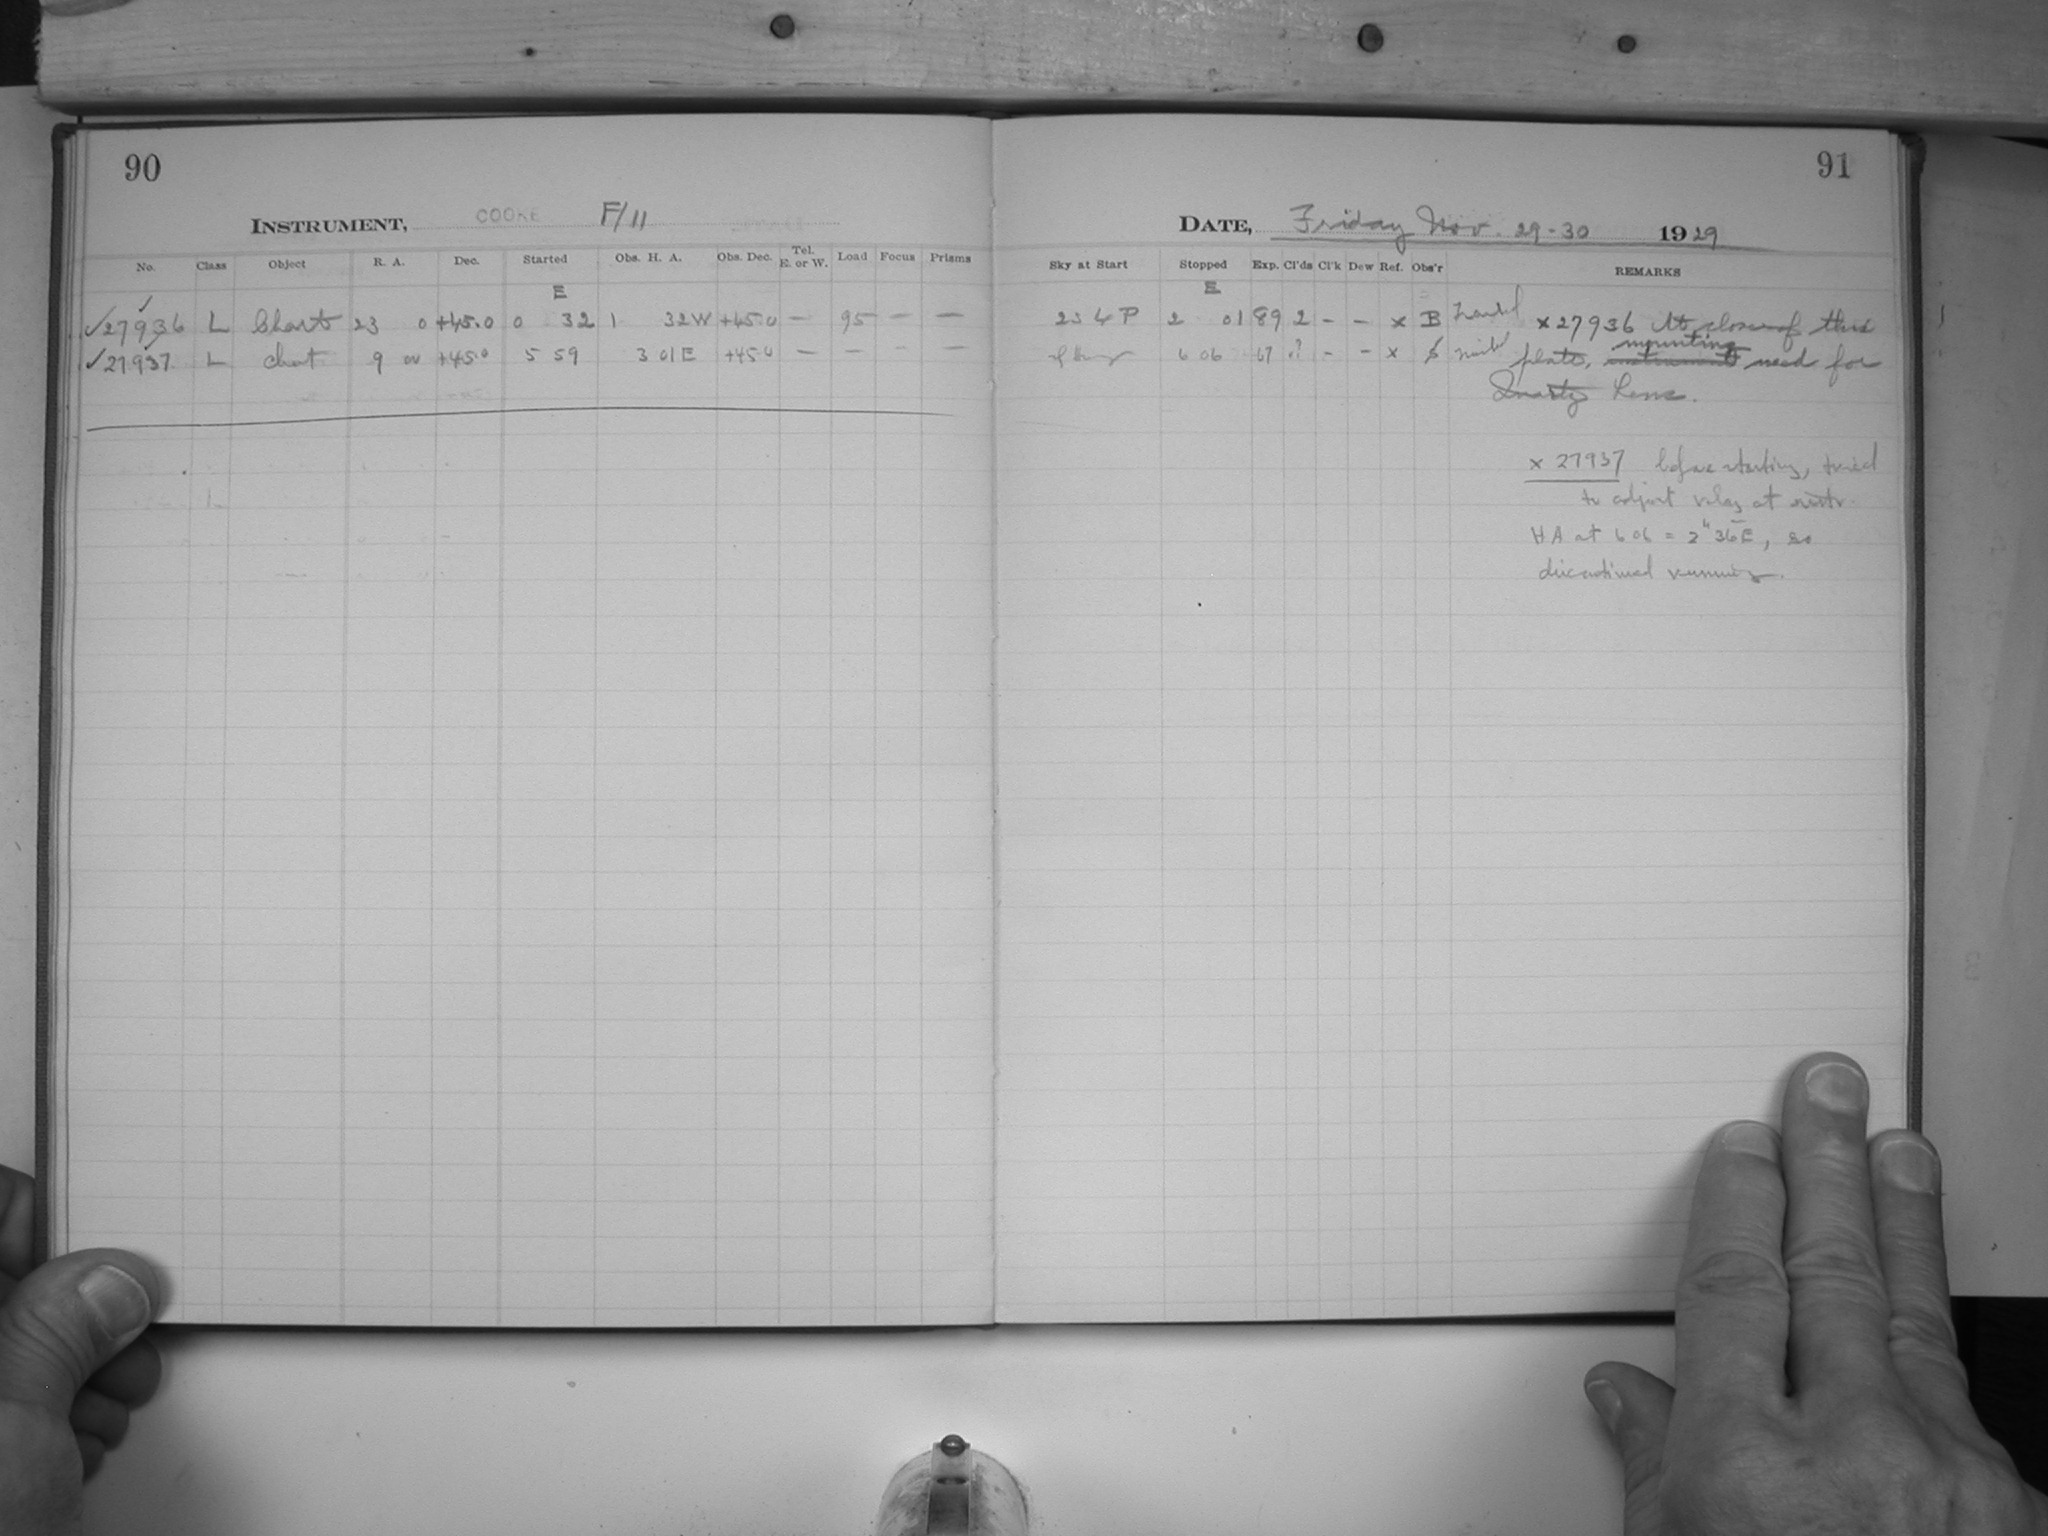 90
INSTRUMENT, COOKE F/11
No. Class Object R. A. Dec. Started Obs. H. A. Obs. Dec. Tel. E. or W. Load Focus Prisms
E
✓27936 L Chart 23 0 +45.0 0 32 1 32W +45.0 — 95 — —
✓27937 L chart 9 00 +45.0 5 59 3 01E +45.0 — — — —
91
DATE, Friday Nov. 29-30 1929
Sky at Start Stopped Exp. Cl'ds Cl'k Dew Ref. Obs'r REMARKS
E
2 01 89 2 - - x B x 27936 At close of this
6 06 - - x plate, mounting instrument used for
Lens.
x 27937 before starting, tried
to adjust at
HA at 6 06 = 2h 36m E, so
discontinued running.